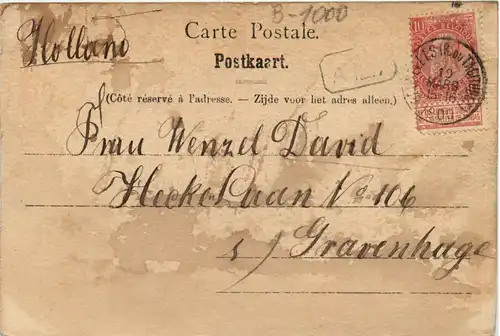 B-1000
Carte Postale.
Holland
Postkaart.
(Côté réservé à l'adresse. — Zijde voor het adres alleen.)
Frau Wenzel David
Laan No 106
s/ Gravenhage
10
12